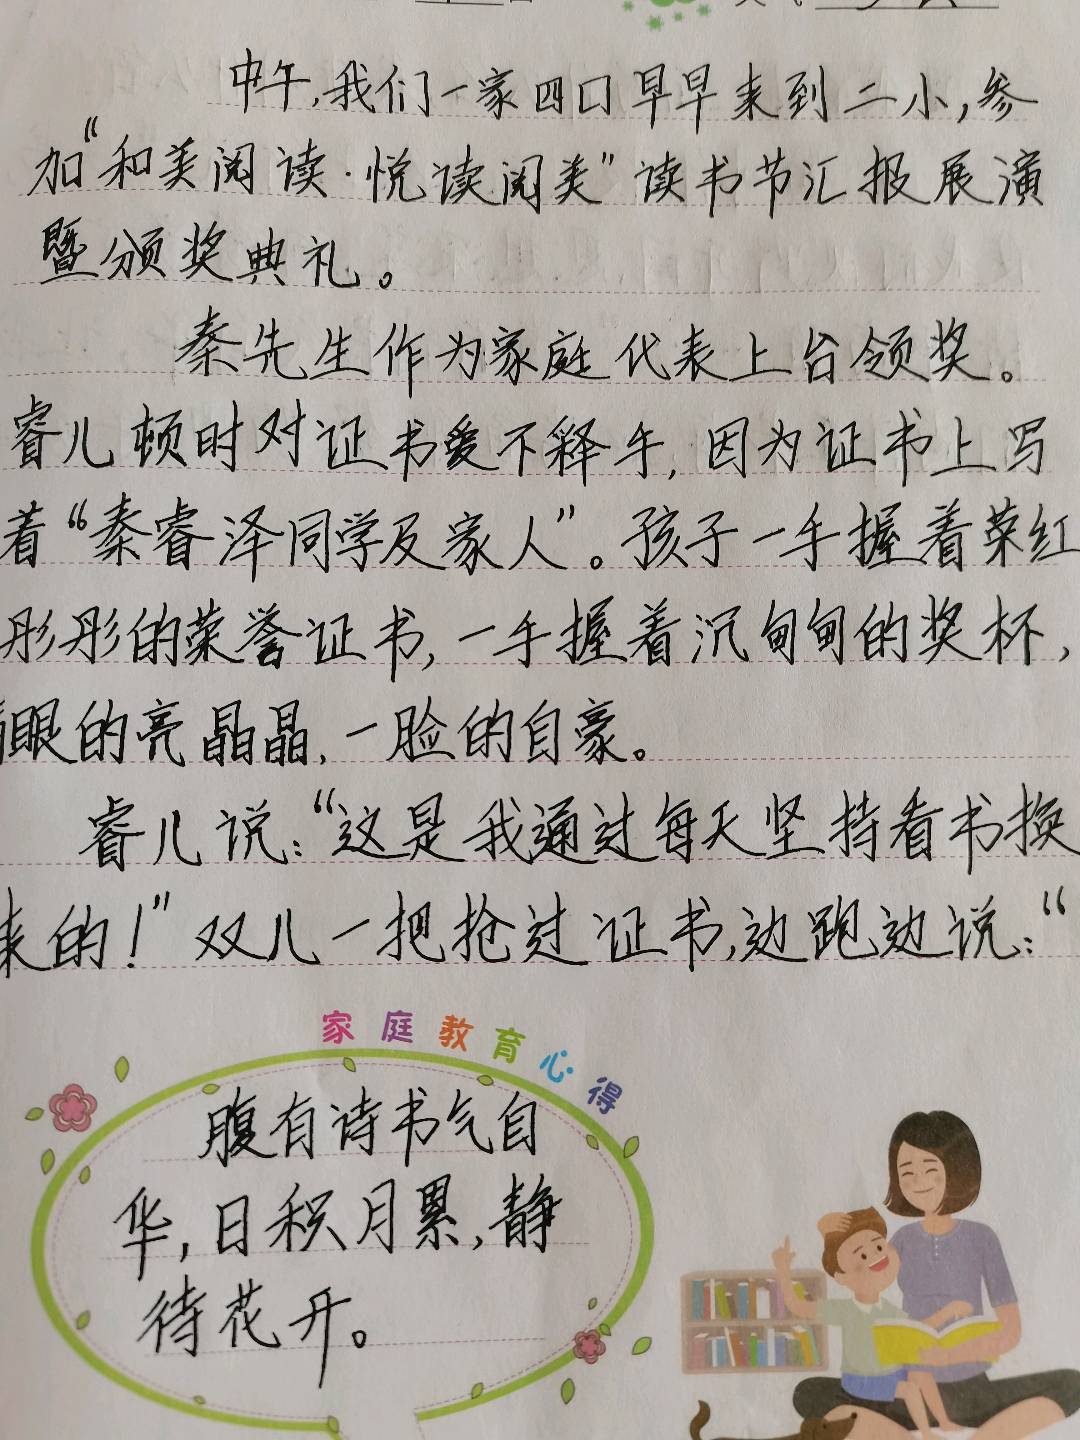 中午,我们一家四口早早来到二小,参
加“和美阅读·悦读阅美”读书节汇报展演
暨颁奖典礼。
秦先生作为家庭代表上台领奖。
睿儿顿时对证书爱不释手,因为证书上写
着“秦睿泽同学及家人”。孩子一手握着荣红
彤彤的荣誉证书,一手握着沉甸甸的奖杯,
满眼的亮晶晶,一脸的自豪。
睿儿说:“这是我通过每天坚持看书换
来的!”双儿一把抢过证书,边跑边说:“
家庭教育心得
腹有诗书气自
华,日积月累,静
待花开。